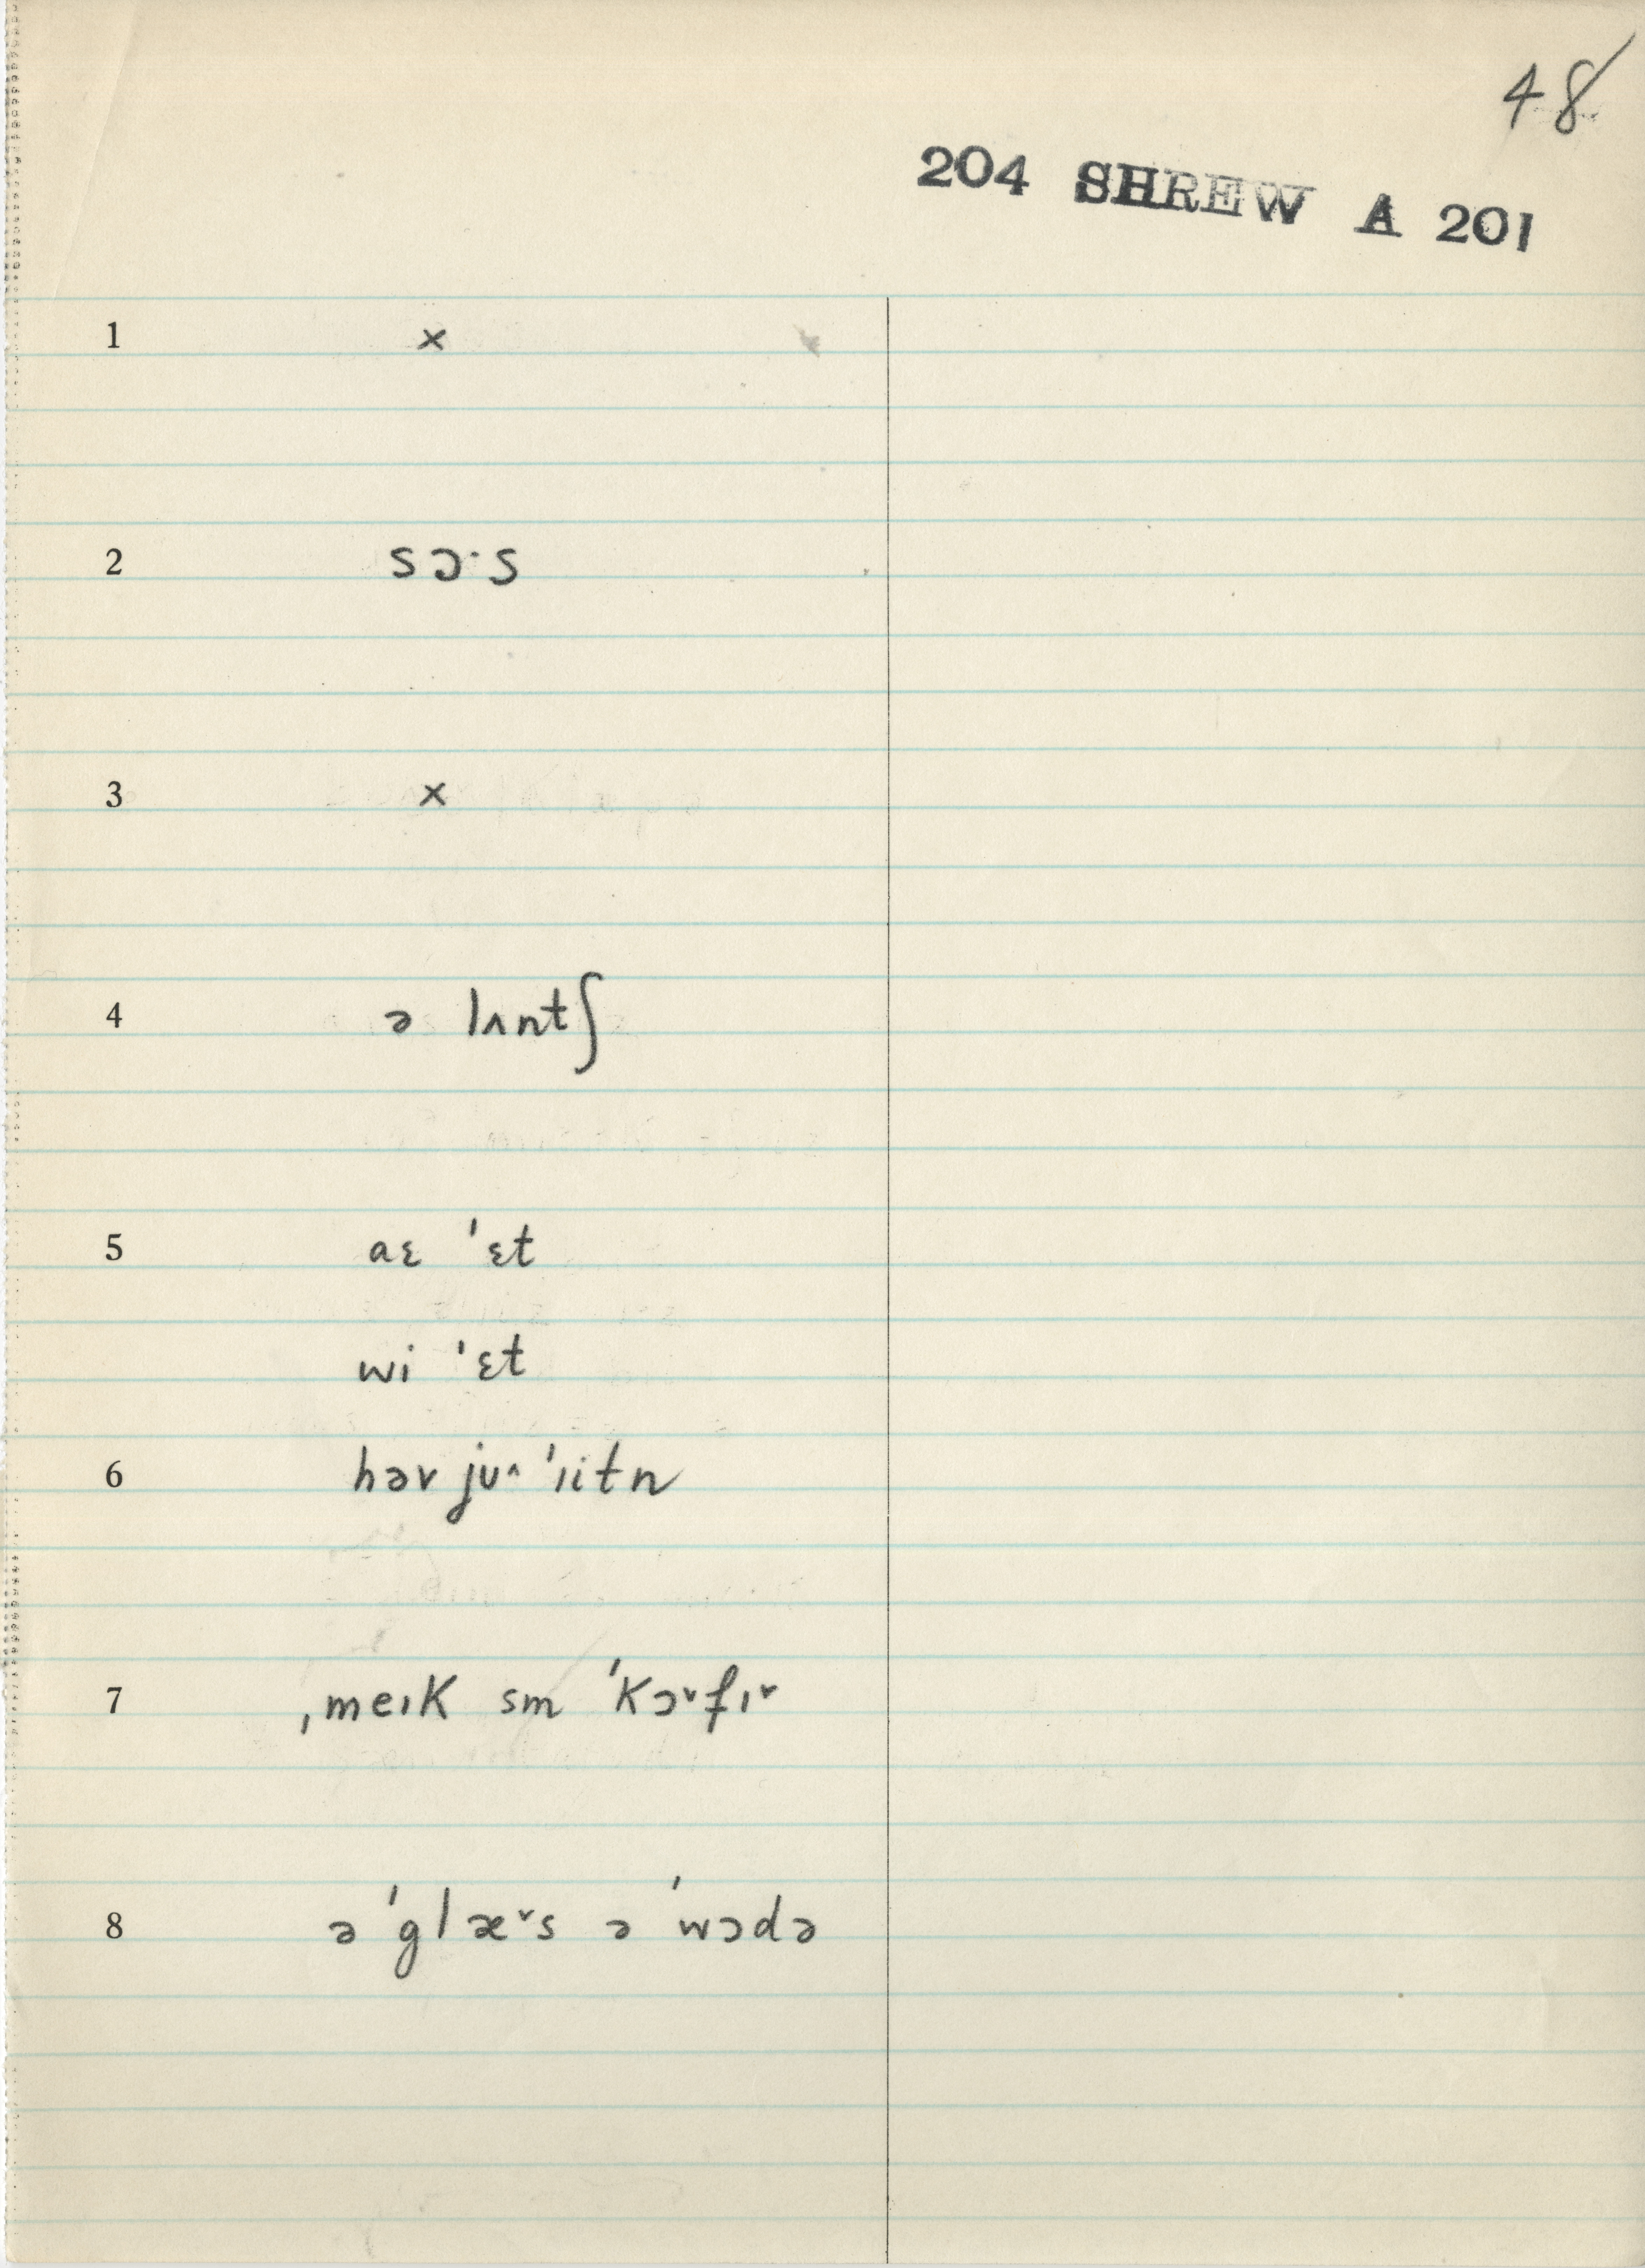 48
204 SHREW A 201
1 ×
2 sɔ·s
3 ×
4 ə lʌntʃ
5 aɛ ˈɛt
wi ˈɛt
6 həv ju˄ ˈiitn
7 ˌmeɪk sm ˈkɔ˅fɪ˅
8 ə ˈglæ˅s ə ˈwɔdə